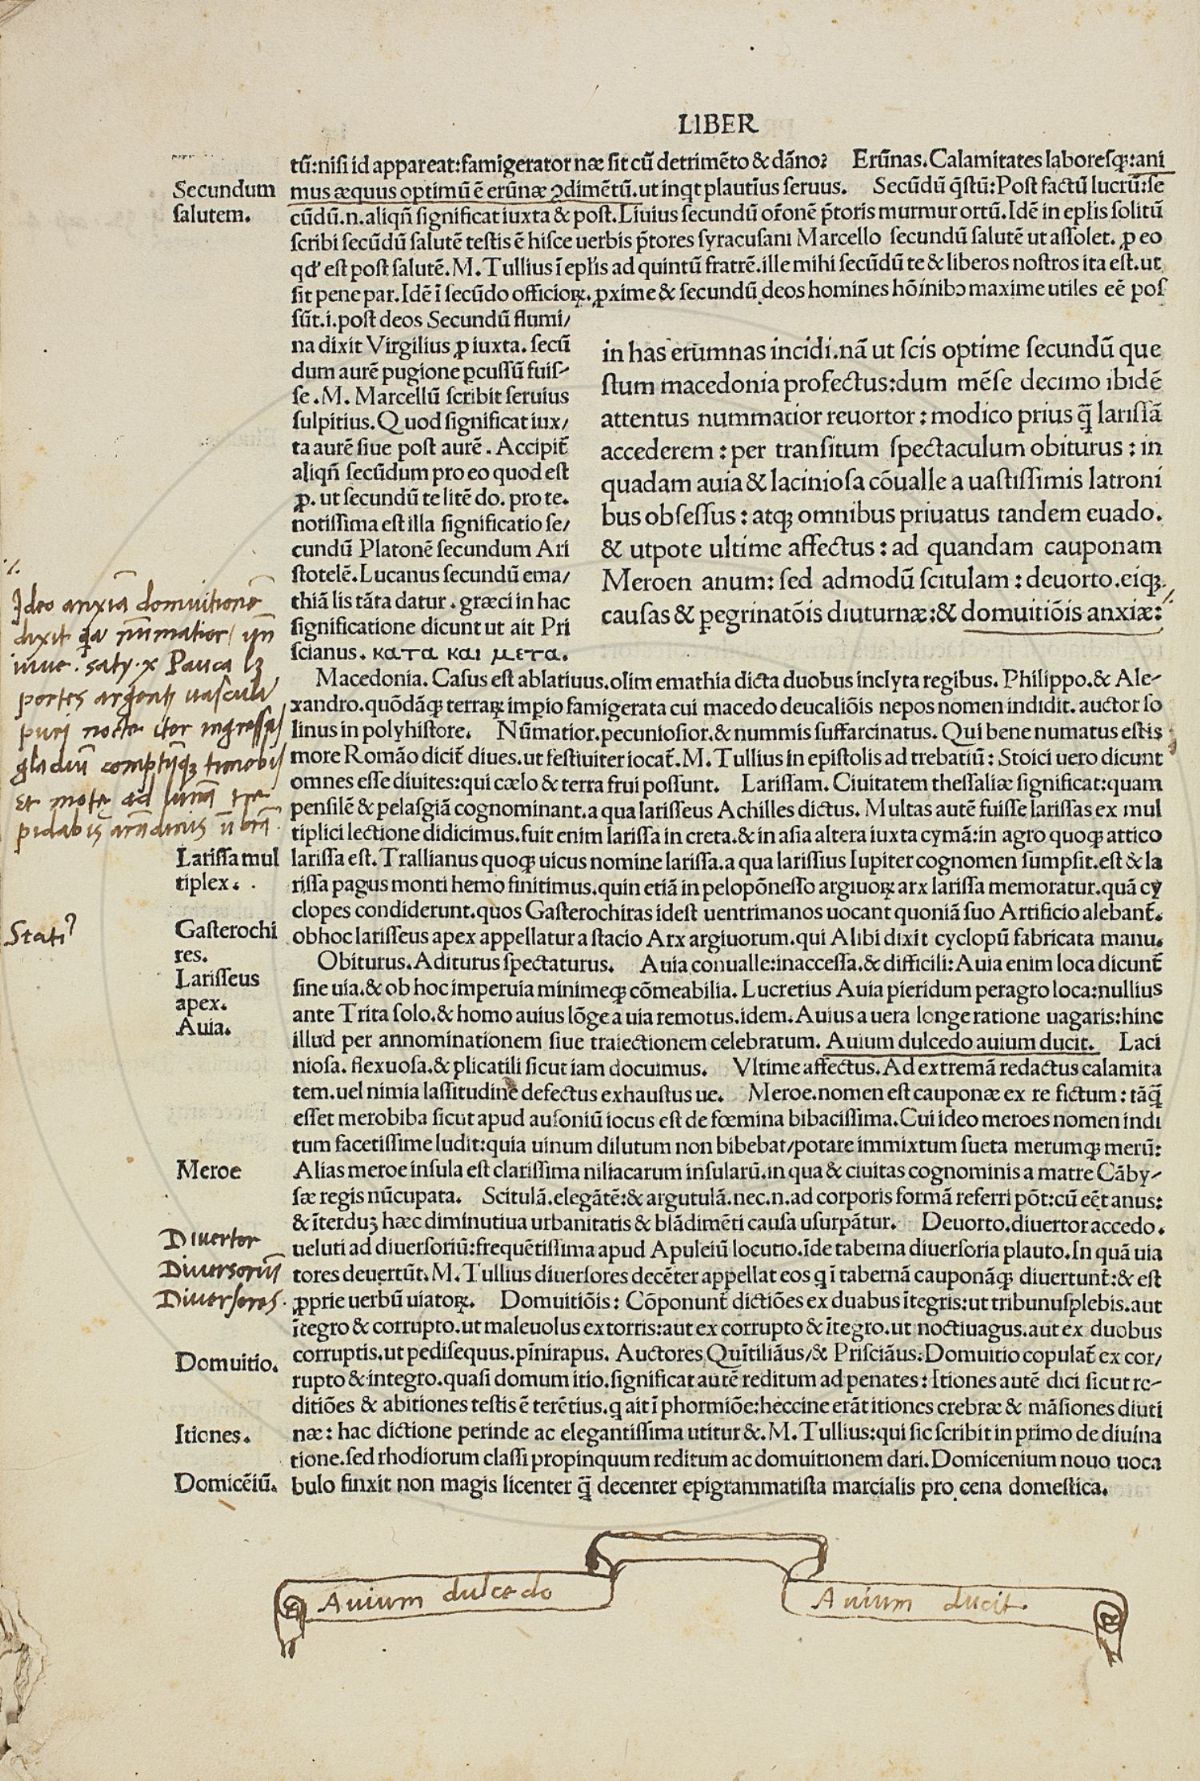 LIBER
tū:nisi id appareat:famigerator næ sit cū detrimēto & dāno? Erūnas.Calamitates laboresꝗ:ani
mus æquus optimū ē erūnæ ꝯdimētū.ut inqt plautius seruus. Secūdū qstū:Post factū lucrū:se
cūdū.n.aliqñ significat iuxta & post.Liuius secundū orōne p̄toris murmur ortū.Idē in eplis solitū
scribi secūdū salutē testis ē hisce uerbis p̄tores syracusani Marcello secundū salutē ut assolet. ꝓ eo
qď est post salutē.M.Tullius ī eplis ad quintū fratrē.ille mihi secūdū te & liberos nostros ita est.ut
sit pene par.Idē ī secūdo officioꝝ.ꝓxime & secundū deos homines hōinibꝰ maxime utiles eē pos
sūt.i.post deos Secundū flumi/
na dixit Virgilius ꝓ iuxta. secū
dum aurē pugione ꝑcussū fuis-
se.M.Marcellū scribit seruius
sulpitius.Quod significat iux/
ta aurē siue post aurē.Accipit̄
aliqñ secūdum pro eo quod est
ꝓ. ut secundū te litē do. pro te.
notissima est illa significatio se/
cundū Platonē secundum Ari
stotelē.Lucanus secundū ema/
thiā lis tāta datur.græci in hac
significatione dicunt ut ait Pri
scianus. κατα και μετα.
in has erumnas incidi.nā ut scis optime secundū que
stum macedonia profectus:dum mēse decimo ibidē
attentus nummatior reuortor:modico prius q̄ larissā
accederem:per transitum spectaculum obiturus:in
quadam auia & laciniosa cōualle a uastissimis latroni
bus obsessus:atqꝫ omnibus priuatus tandem euado.
& utpote ultime affectus:ad quandam cauponam
Meroen anum: sed admodū scitulam:deuorto.eiqꝫ
causas & ꝑegrinatōis diuturnæ:& domuitiōis anxiæ:
Macedonia. Casus est ablatiuus.olim emathia dicta duobus inclyta regibus. Philippo.& Ale-
xandro.quōdāqꝫ terraꝝ impio famigerata cui macedo deucaliōis nepos nomen indidit. auctor so
linus in polyhistore. Nūmatior.pecuniosior.& nummis suffarcinatus. Qui bene numatus estis
more Romāo dicit̄ dives.ut festiuiter iocat̄.M.Tullius in epistolis ad trebatiū:Stoici uero dicunt
omnes esse diuites:qui cælo & terra frui possunt. Larissam. Ciuitatem thessaliæ significat:quam
pensilē & pelasgiā cognominant.a qua larisseus Achilles dictus. Multas autē fuisse larissas ex mul
tiplici lectione didicimus.fuit enim larissa in creta.& in asia altera iuxta cymā:in agro quoqꝫ attico
larissa est.Trallianus quoqꝫ uicus nomine larissa.a qua larissius Iupiter cognomen sumpsit.est & la
rissa pagus monti hemo finitimus.quin etiā in pelopōnesso argiuoꝝ arx larissa memoratur.quā cy
clopes condiderunt.quos Gasterochiras idest uentrimanos uocant quoniā suo Artificio alebant̄.
obhoc larisseus apex appellatur a stacio Arx argiuorum.qui Alibi dixit cyclopū fabricata manu.
Obiturus.Aditurus spectaturus. Auia conualle:inaccessa.& difficili:Auia enim loca dicunt̄
sine uia.& ob hoc imperuia minimeqꝫ cōmeabilia. Lucretius Auia pieridum peragro loca:nullius
ante Trita solo.& homo auius lōge a uia remotus.idem.Auius a uera longe ratione uagaris:hinc
illud per annominationem siue traiectionem celebratum. Auium dulcedo auium ducit. Laci
niosa. flexuosa.& plicatili sicut iam docuimus. Vltime affectus.Ad extremā redactus calamita
tem.uel nimia lassitudine defectus exhaustus ue. Meroe.nomen est cauponæ ex re fictum:tāq̄
esset merobiba sicut apud ausoniū iocus est de fœmina bibacissima.Cui ideo meroes nomen indi
tum facetissime ludit:quia uinum dilutum non bibebat/potare immixtum sueta merumqꝫ merū:
Alias meroe insula est clarissima niliacarum insularū.in qua & ciuitas cognominis a matre Cāby-
sæ regis nūcupata. Scitulā.elegātē:& argutulā.nec.n.ad corporis formā referri pōt:cū eēt anus:
& īterduꝫ hæc diminutiua urbanitatis & blādimēti causa usurpātur. Deuorto.diuertor accedo.
ueluti ad diuersoriū:frequētissima apud Apuleiū locutio.īde taberna diuersoria plauto.In quā uia
tores deuertūt.M.Tullius diuersores decēter appellat eos q ī tabernā cauponāqꝫ diuertunt:& est
ꝓprie uerbū uiatoꝝ. Domuitiōis: Cōponunt̄ dictiōes ex duabus ītegris:ut tribunusplebis.aut
ītegro & corrupto.ut maleuolus extorris:aut ex corrupto & ītegro.ut noctiuagus.aut ex duobus
corruptis.ut pedisequus.pīnirapus. Auctores Quītiliāus/& Prisciāus:Domuitio copulat̄ ex cor/
rupto & integro.quasi domum itio.significat autē reditum ad penates:Itiones autē dici sicut re-
ditiōes & abitiones testis ē terētius.q ait ī phormiōe:heccine erāt itiones crebræ & māsiones diuti
næ: hac dictione perinde ac elegantissima utitur &.M.Tullius:qui sic scribit in primo de diuina
tione.sed rhodiorum classi propinquum reditum ac domuitionem dari.Domicenium nouo uoca
bulo finxit non magis licenter q̄ decenter epigrammatista marcialis pro cena domestica.
Secundum
salutem.
Ideo anxiā domuitionē
dixit qa nūmatior/
iuue. saty. x Pauca lꝫ
portes argenti vascula
puri nocte iter ingressus
gladiū comptūqꝫ timebis
Et mote ad lunā tre
pidabis arūdinis ūbrā.
Larissa mul
tiplex.
Stati⁹
Gasterochi
res.
Larisseus
apex.
Auia.
Meroe
Diuertor
Diuersoriū
Diuersores.
Domuitio.
Itiones.
Domicēiū.
Auium dulcedo
Auium ducit.